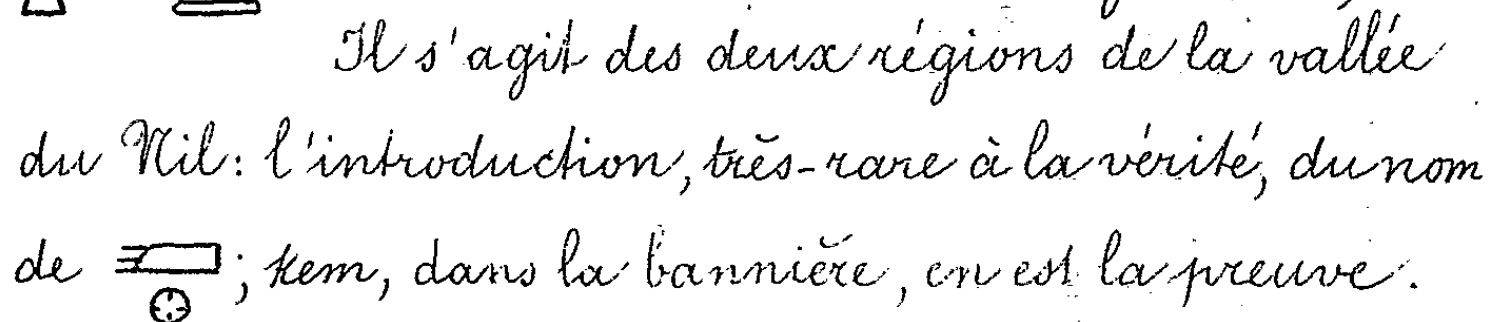 Il s'agit des deux régions de la vallée
du Nil: l'introduction, très-rare à la vérité, du nom
de 𓆎𓊖; kem, dans la bannière, en est la preuve.